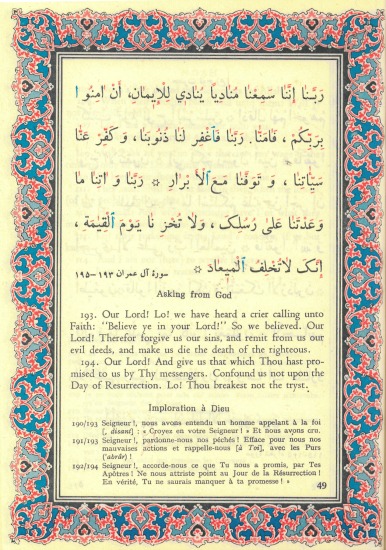 رَبَّنا إِنَّنا سَمِعْنا مُنادِيًا يُنادِي لِلْإِيمانِ، أَنْ امِنُوا
بِرَبِّكُمْ، فَامَنَّا. رَبَّنا فَاغْفِر لَنا ذُنُوبَنا، وَ كَفِّر عَنَّا
سَيِّاتِنا، وَ تَوَفَّنا مَعَ الْأَبْرارِ * رَبَّنا وَ اتِنا ما
وَعَدْتَنا عَلى رُسُلِكَ، وَلا تُخْزِ نا يَوْمَ الْقِيٰمَةِ،
إِنَّكَ لا تُخْلِفُ الْمِيعادَ *
سورة آل عمران ۱۹۳-۱۹۵
Asking from God
193. Our Lord! Lo! we have heard a crier calling unto
Faith: "Believe ye in your Lord!" So we believed. Our
Lord! Therefor forgive us our sins, and remit from us our
evil deeds, and make us die the death of the righteous.
194. Our Lord! And give us that which Thou hast pro-
mised to us by Thy messengers. Confound us not upon the
Day of Resurrection. Lo! Thou breakest not the tryst.
Imploration à Dieu
190/193 Seigneur!, nous avons entendu un homme appelant à la foi
[, disant] : « Croyez en votre Seigneur! » Et nous avons cru.
191/193 Seigneur!, pardonne-nous nos péchés! Efface pour nous nos
mauvaises actions et rappelle-nous [à Toi], avec les Purs
('abrâr)!
192/194 Seigneur!, accorde-nous ce que Tu nous a promis, par Tes
Apôtres! Ne nous attriste point au Jour de la Résurrection!
En vérité, Tu ne saurais manquer à ta promesse! »
49